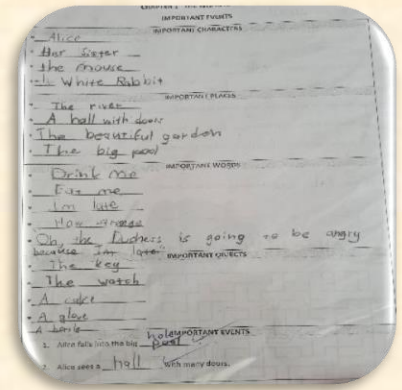 IMPORTANT EVENTS
IMPORTANT CHARACTERS
Alice
Her sister
the mouse
White Rabbit
IMPORTANT PLACES
The river
A hall with doors
The beautiful garden
The big pool
IMPORTANT WORDS
Drink me
Eat me
Im late
How
Oh the Duchess is going to be angry
because Im late"
IMPORTANT OBJECTS
The key
The watch
A cake
A glove
A bottle
IMPORTANT EVENTS
1. Alice falls into the big hole
2. Alice sees a hall With many doors.